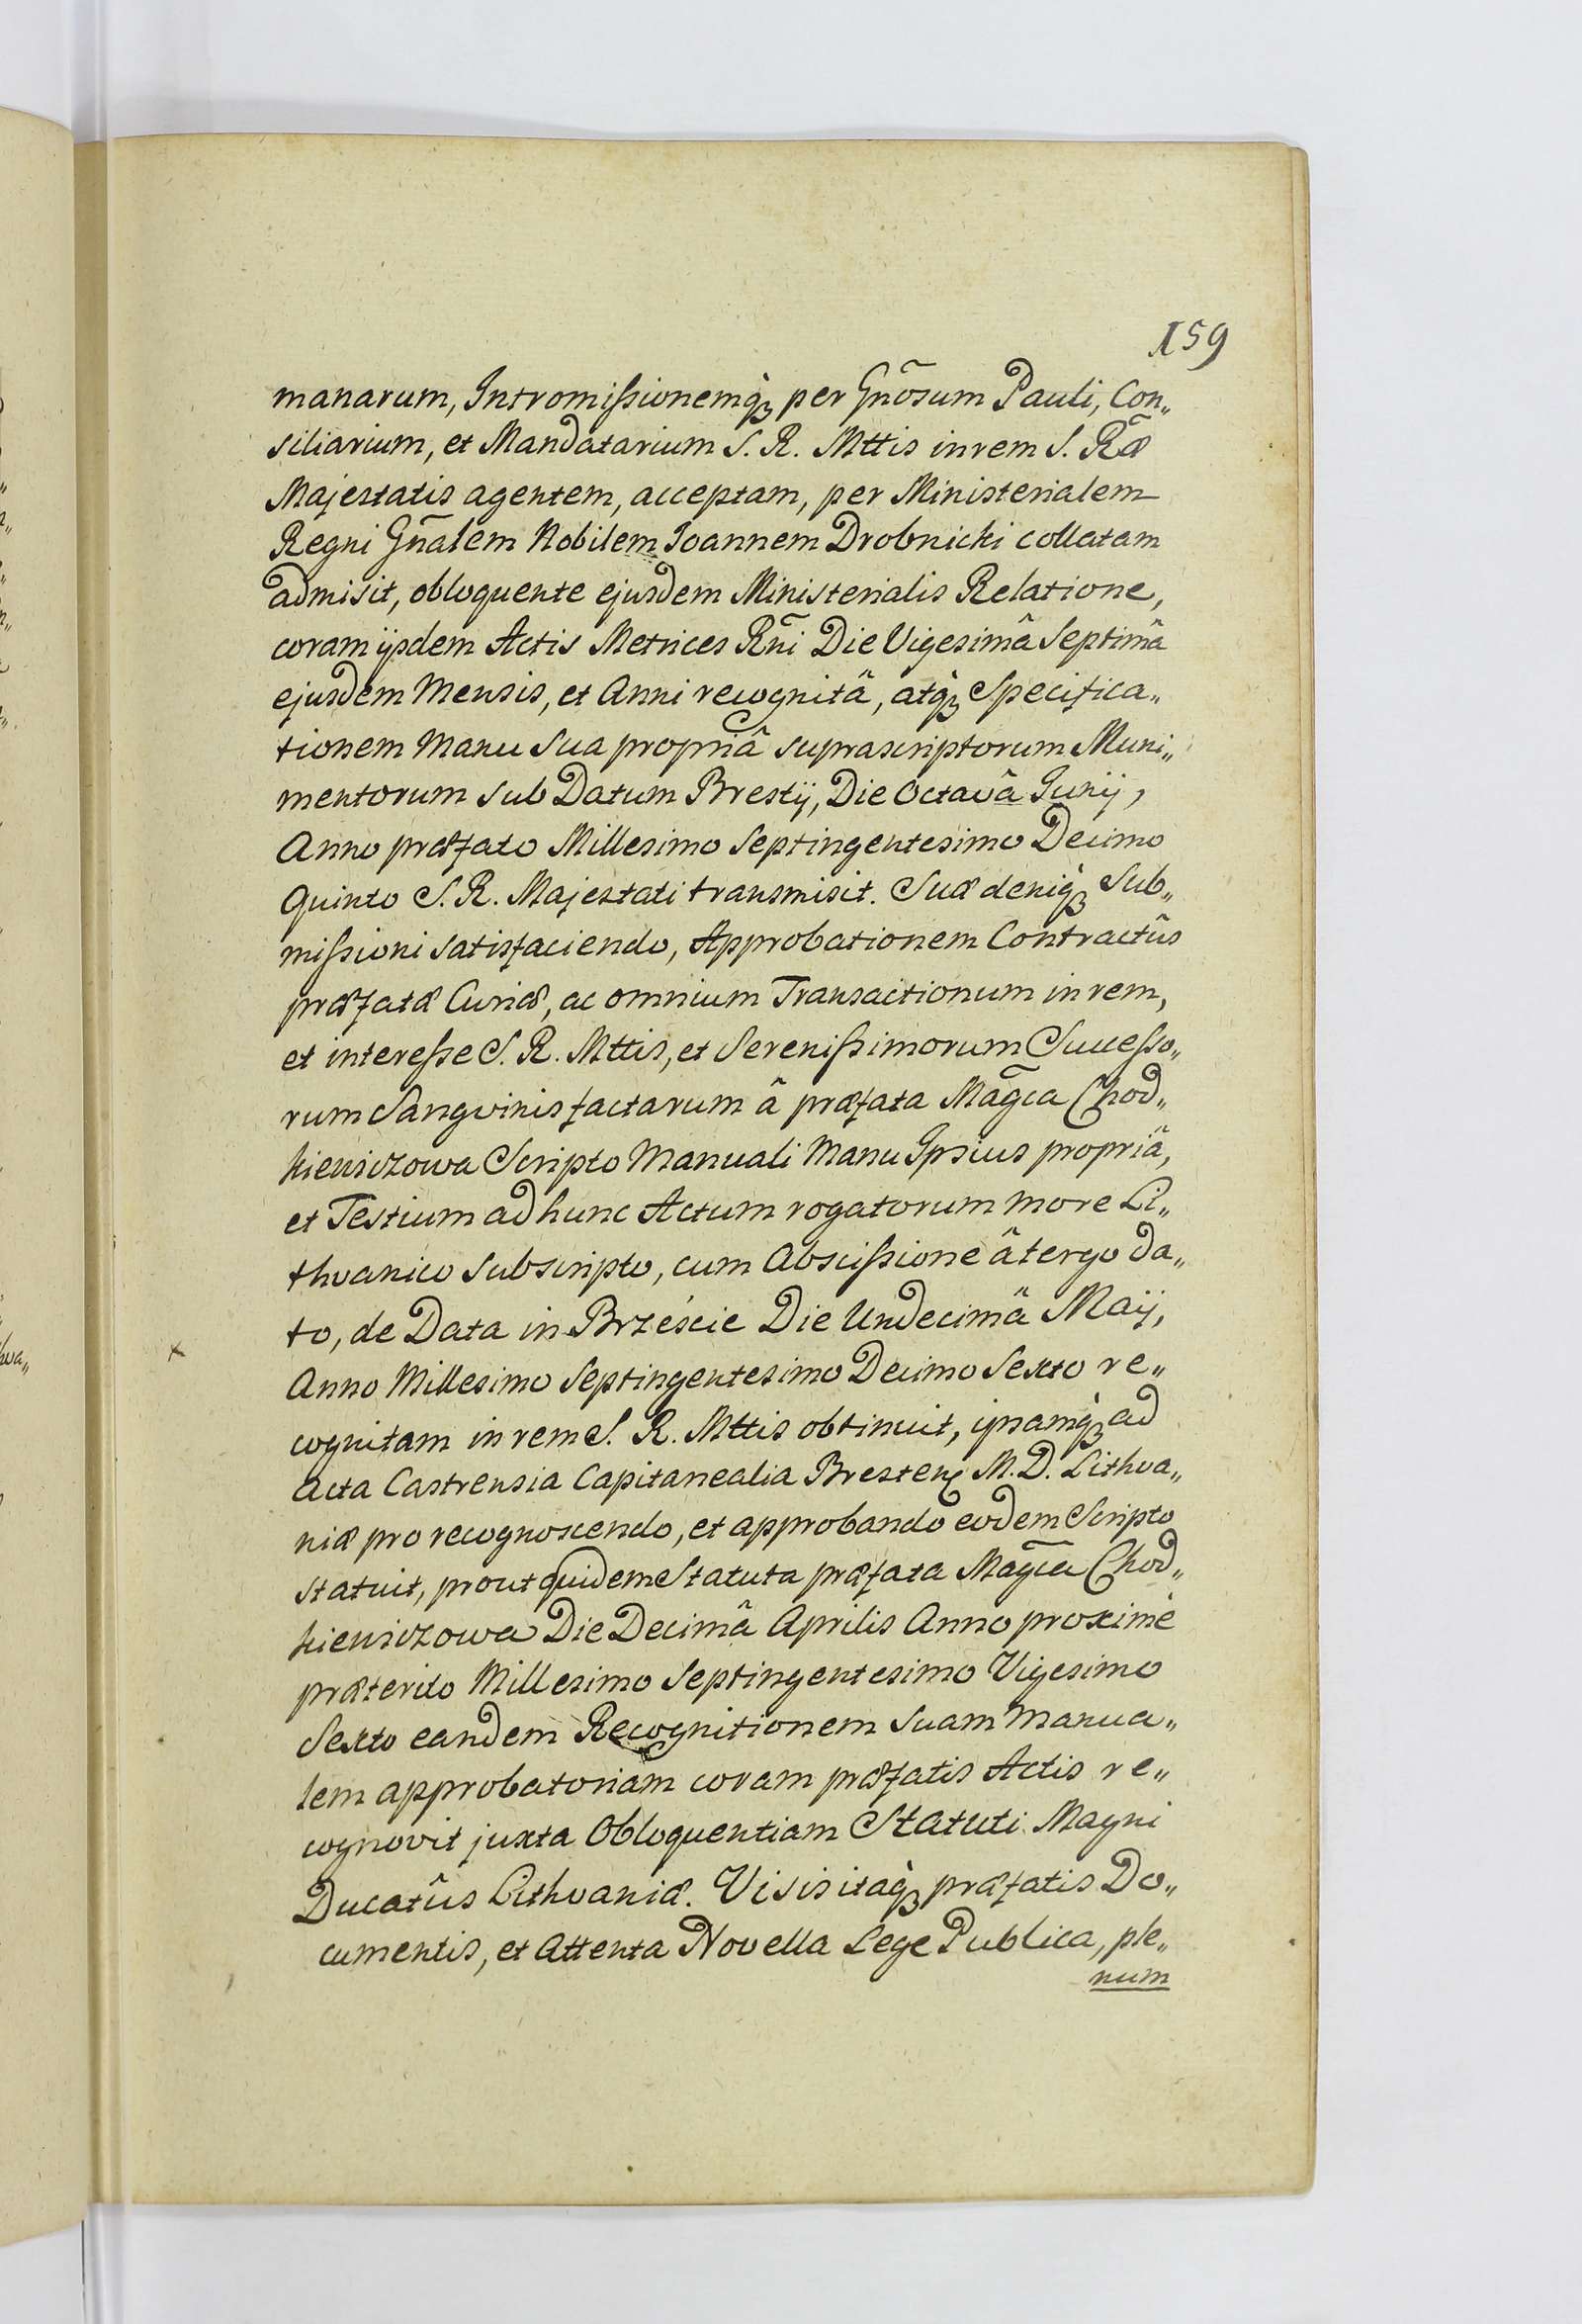 159
manarum, Intromissionemq̀ꝫ per Gñosum Pauli, Con„
siliarium, et Mandatarium S. R. Mttis in rem S. R̃æ
Majestatis agentem, acceptam, per Ministerialem
Regni Gñalem Nobilem Joannem Drobnicki collatam
admisit, obloquente ejusdem Ministerialis Relatione,
coram ijsdem Actis Metrices Rñi Die Vigesimâ Septimâ
ejusdem Mensis, et Anni recognitâ, atq̀ꝫ Specifica„
tionem Manu Sua propriâ suprascriptorum Muni„
mentorum sub Datum Brestij, Die Octavâ Junij,
Anno præfato Millesimo Septingentesimo Decimo
Quinto S. R. Majestati transmisit. Suæ deniq̀ꝫ Sub„
missioni satisfaciendo, Approbationem Contractûs
præfatæ Curiæ, ac omnium Transactionum in rem,
et interesse S. R. Mttis, et Serenissimorum Successo„
rum Sangvinis factarum â præfata Mag̃ca Chod„
kiewiczowa Scripto Manuali Manu Ipsius propriâ,
et Testium ad hunc Actum rogatorum more Li„
thvanico subscripto, cum Abscissione â tergo da„
to, de Data in Brzeście Die Undecimâ Maij,
x
Anno Millesimo Septingentesimo Decimo Sexto re„
cognitam in rem S. R. Mttis obtinuit, ipsamq̀ꝫ ad
Acta Castrensia Capitanealia Bresten M. D. Lithva„
niæ pro recognoscendo, et approbando eodem Scripto
statuit, prout quidem Statuta præfata Mag̃ca Chod„
kiewiczowa Die Decimâ Aprilis Anno proximè
præterito Millesimo Septingentesimo Vigesimo
Sexto eandem Recognitionem suam Manua„
lem approbatoriam coram præfatis Actis re„
cognovit juxta Obloquentiam Statuti Magni
Ducatûs Lithvaniæ. Visis itaq̀ꝫ præfatis Do„
cumentis, et Attenta Novella Lege Publica, ple„
num